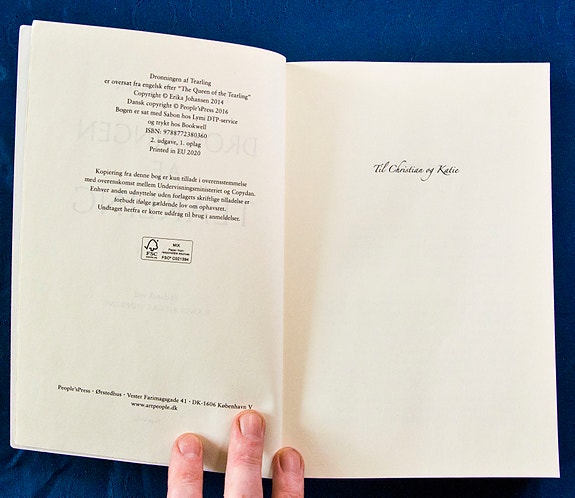 Dronningen af Tearling
er oversat fra engelsk efter "The Queen of the Tearling"
Copyright © Erika Johansen 2014
Dansk copyright © People'sPress 2016
Bogen er sat med Sabon hos Lymi DTP-service
og trykt hos Bookwell
ISBN: 9788772380360
2. udgave, 1. oplag
Printed in EU 2020
Kopiering fra denne bog er kun tilladt i overensstemmelse
med overenskomst mellem Undervisningsministeriet og Copydan.
Enhver anden udnyttelse uden forlagets skriftlige tilladelse er
forbudt ifølge gældende lov om ophavsret.
Undtaget herfra er korte uddrag til brug i anmeldelser.
FSC
MIX
Paper from
responsible sources
FSC® C021394
People'sPress · Ørstedhus · Vester Farimagsgade 41 · DK-1606 København V
www.artpeople.dk
Til Christian og Katie